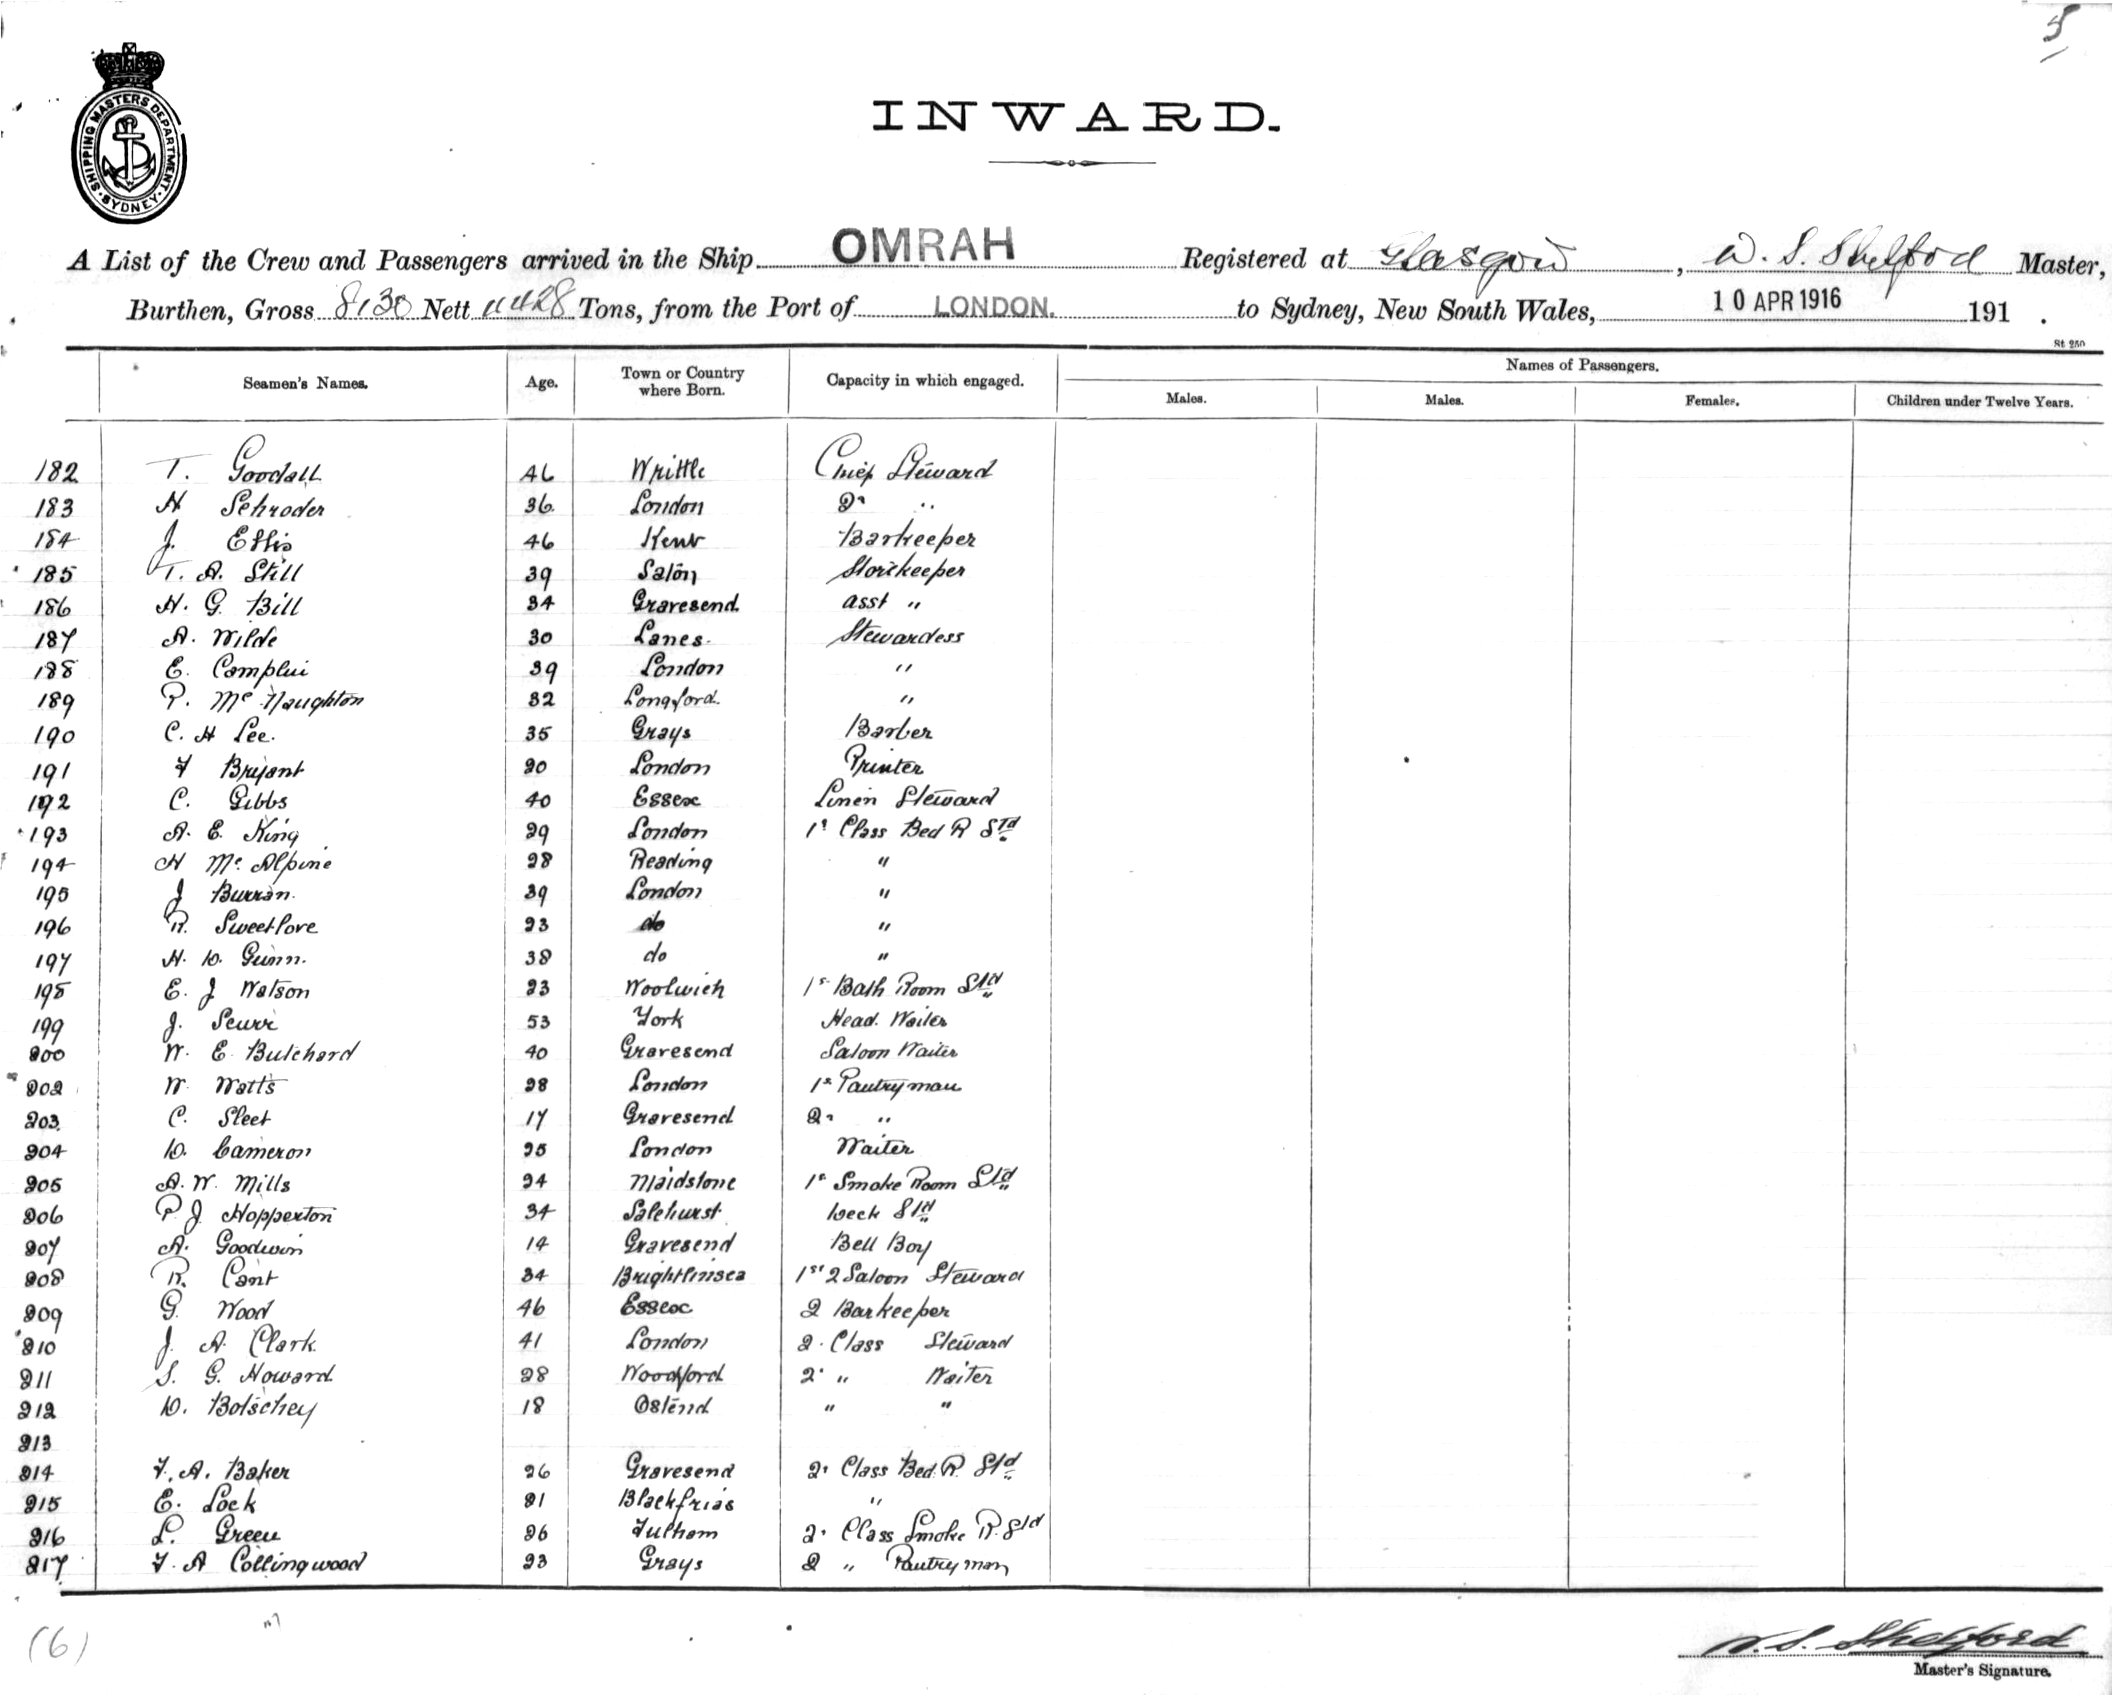 5
SHIPPING MASTERS DEPARTMENT
SYDNEY
INWARD.
A List of the Crew and Passengers arrived in the Ship OMRAH Registered at Glasgow, W. S. Shelford Master,
Burthen, Gross 8130 Nett 4428 Tons, from the Port of LONDON. to Sydney, New South Wales, 10 APR 1916 191 .
St 250
Seamen's Names. Age. Town or Country where Born. Capacity in which engaged. Names of Passengers.
Males. Males. Females. Children under Twelve Years.
182 T. Goodall 46 Writtle Chief Steward
183 H Schroder 36 London 2n "
184 J. Ellis 46 Kent Barkeeper
185 T. A. Still 39 Salon Storekeeper
186 H. G. Bill 34 Gravesend asst "
187 A. Wilde 30 Lancs. Stewardess
188 E. 39 London "
189 P. Mc Naughton 32 Longford. "
190 C. H Lee. 35 Grays Barber
191 F Bryant 20 London Printer
192 C. Gibbs 40 Essex Linen Steward
193 A. E. King 29 London 1s Class Bed R Std
194 H Mc Alpine 28 Reading "
195 J Burran. 39 London "
196 R. Sweetlove 23 do "
197 H. D. Gunn. 38 do "
198 E. J Watson 23 Woolwich 1s Bath Room Std
199 J. Scurr 53 York Head. Waiter
200 W. E. Butchard 40 Gravesend Saloon Waiter
202 W Watts 28 London 1s Pantryman
203. C. Sleet 17 Gravesend 2n "
204 D. Cameron 25 London Waiter
205 A. W. Mills 24 Maidstone 1s Smoke Room Std
206 P. J Hopperton 34 Salehurst Deck Std
207 A. Goodwin 14 Gravesend Bell Boy
208 R. Cant 34 Brightlinsea 1st 2 Saloon Steward
209 G. Wood 46 Essex 2 Barkeeper
210 J. A. Clark 41 London 2. Class Steward
211 S. G. Howard 28 Woodford 2. " Waiter
212 D. Botschey 18 Ostend " "
213
214 F. A. Baker 26 Gravesend 2. Class Bed. R. Std
215 E. Lock 21 Blackfrias "
216 L. Green 26 Fulham 2. Class Smoke R. Std
217 F. A Collingwood 23 Grays 2 " Pantryman
(6)
W. S. Shelford
Master's Signature.